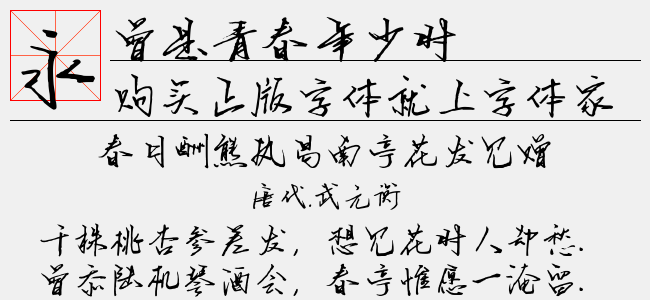 永
曾是青春年少时
购买正版字体就上字体家
春日酬熊执易南亭花发见赠
唐代.武元衡
千株桃杏参差发，想见花时人却愁.
曾忝陆机琴酒会，春亭惟愿一淹留.